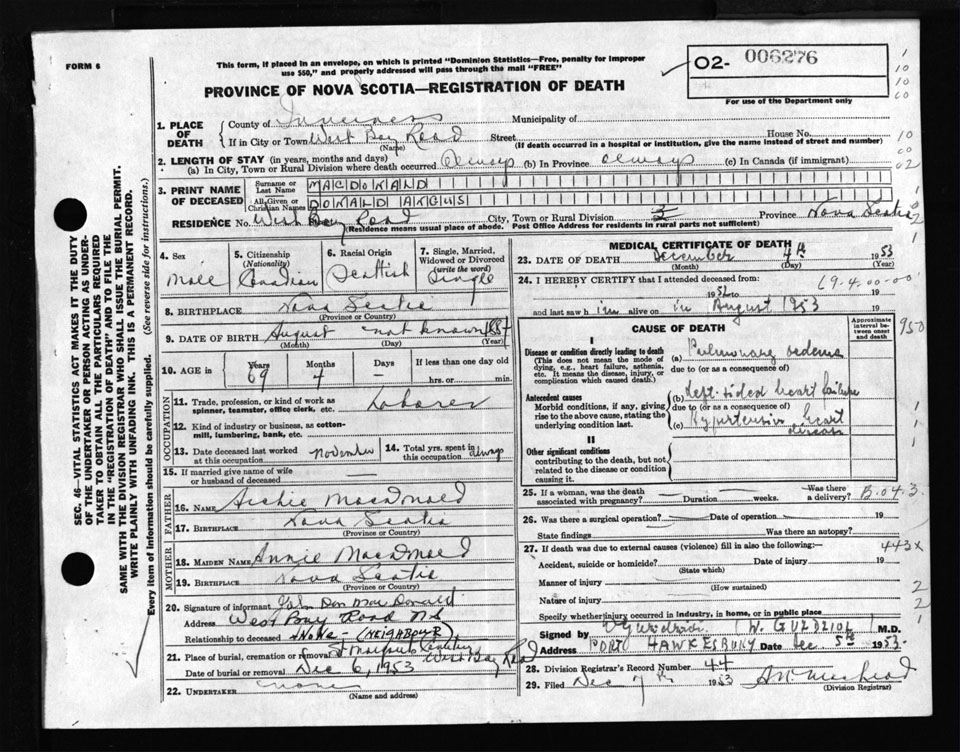 FORM 6
This form, if placed in an envelope, on which is printed "Dominion Statistics—Free, penalty for improper
use $50," and properly addressed will pass through the mail "FREE"
PROVINCE OF NOVA SCOTIA—REGISTRATION OF DEATH
O2- 006276
For use of the Department only
1. PLACE OF DEATH
County of Inverness Municipality of
If in City or Town West Bay Road Street House No.
(Name) (If death occurred in a hospital or institution, give the name instead of street and number)
2. LENGTH OF STAY (in years, months and days)
(a) In City, Town or Rural Division where death occurred always (b) In Province always (c) In Canada (if immigrant)
3. PRINT NAME OF DECEASED
Surname or Last Name MACDONALD
All Given or Christian Names DONALD ANGUS
RESIDENCE No. West Bay Road City, Town or Rural Division 3 Province Nova Scotia
(Residence means usual place of abode. Post Office Address for residents in rural parts not sufficient)
4. Sex Male
5. Citizenship (Nationality) Canadian
6. Racial Origin Scottish
7. Single, Married, Widowed or Divorced (write the word) Single
8. BIRTHPLACE Nova Scotia
(Province or Country)
9. DATE OF BIRTH August not known
(Month) (Day) (Year)
10. AGE in Years 69 Months 4 Days - If less than one day old hrs. or min.
OCCUPATION
11. Trade, profession, or kind of work as spinner, teamster, office clerk, etc. Laborer
12. Kind of industry or business, as cotton-mill, lumbering, bank, etc.
13. Date deceased last worked at this occupation November
14. Total yrs. spent in this occupation always
15. If married give name of wife or husband of deceased
FATHER
16. Name Archie MacDonald
17. Birthplace Nova Scotia
(Province or Country)
MOTHER
18. MAIDEN NAME Annie MacDonald
19. BIRTHPLACE Nova Scotia
(Province or Country)
20. Signature of informant John Dan MacDonald
Address West Bay Road NS
Relationship to deceased None - (NEIGHBOUR)
21. Place of burial, cremation or removal West Bay Road
Date of burial or removal Dec 6, 1953
22. UNDERTAKER none
(Name and address)
MEDICAL CERTIFICATE OF DEATH
23. DATE OF DEATH December 4th 1953
(Month) (Day) (Year)
24. I HEREBY CERTIFY that I attended deceased from:
1952 to 19
and last saw him alive on in August 1953 19
69-4-00-00
CAUSE OF DEATH
Approximate interval between onset and death
950
I
Disease or condition directly leading to death
(This does not mean the mode of dying, e.g., heart failure, asthenia, etc. It means the disease, injury, or complication which caused death.)
(a) Pulmonary oedema
due to (or as a consequence of)
Antecedent causes
Morbid conditions, if any, giving rise to the above cause, stating the underlying condition last.
(b) Left-sided heart failure
due to (or as a consequence of)
(c) Hypertensive heart disease
II
Other significant conditions
contributing to the death, but not related to the disease or condition causing it.
25. If a woman, was the death associated with pregnancy? Duration weeks. Was there a delivery?
B.04.3
26. Was there a surgical operation? Date of operation 19
State findings Was there an autopsy?
27. If death was due to external causes (violence) fill in also the following:—
443X
Accident, suicide or homicide? Date of injury 19
(State which)
Manner of injury
(How sustained)
Nature of injury
Specify whether injury occurred in industry, in home, or in public place
Signed by M.D.
Address PORT HAWKESBURY Date Dec 5th 1953
28. Division Registrar's Record Number 44
29. Filed Dec 7th 1953
(Division Registrar)
SEC. 46—VITAL STATISTICS ACT MAKES IT THE DUTY
OF THE UNDERTAKER OR PERSON ACTING AS UNDER-
TAKER TO OBTAIN ALL THE PARTICULARS REQUIRED
IN THE "REGISTRATION OF DEATH" AND TO FILE THE
SAME WITH THE DIVISION REGISTRAR WHO SHALL ISSUE THE BURIAL PERMIT.
WRITE PLAINLY WITH UNFADING INK. THIS IS A PERMANENT RECORD.
Every item of information should be carefully supplied. (See reverse side for instructions.)